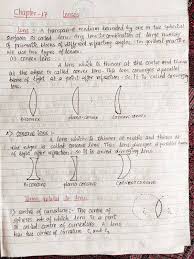 Chapter-17 Lenses
Lens :- A transparent medium bounded by one or two spherical
surfaces is called lens. Any lens is combination of large number
of prismatic blocks of different refracting angles. In general practice
we use two types of lenses.
1) convex lens
A lens which is thicker at the centre and thinner
at the edges is called convex lens. This lens converges a parallel
beam of light at a point after refraction so it is called converging
lens.
Biconvex plano convex
2) Concave lens :-
A lens which is thinner at middle and thicker at
the edges is called concave lens. This lens diverges a parallel beam
of light after refraction so it is called diverging lens.
Biconcave plano concave
Terms related to lens
1) centre of curvature :- The centre of
sphere of which lens is a part
is called centre of curvature. A lens
has two centre of curvature C₁ and C₂